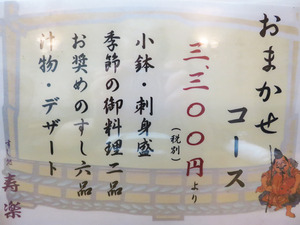 おまかせ
コース
三、三〇〇円より
(税別)
小鉢・刺身盛
季節の御料理二品
お奨めのすし六品
汁物・デザート
寿楽